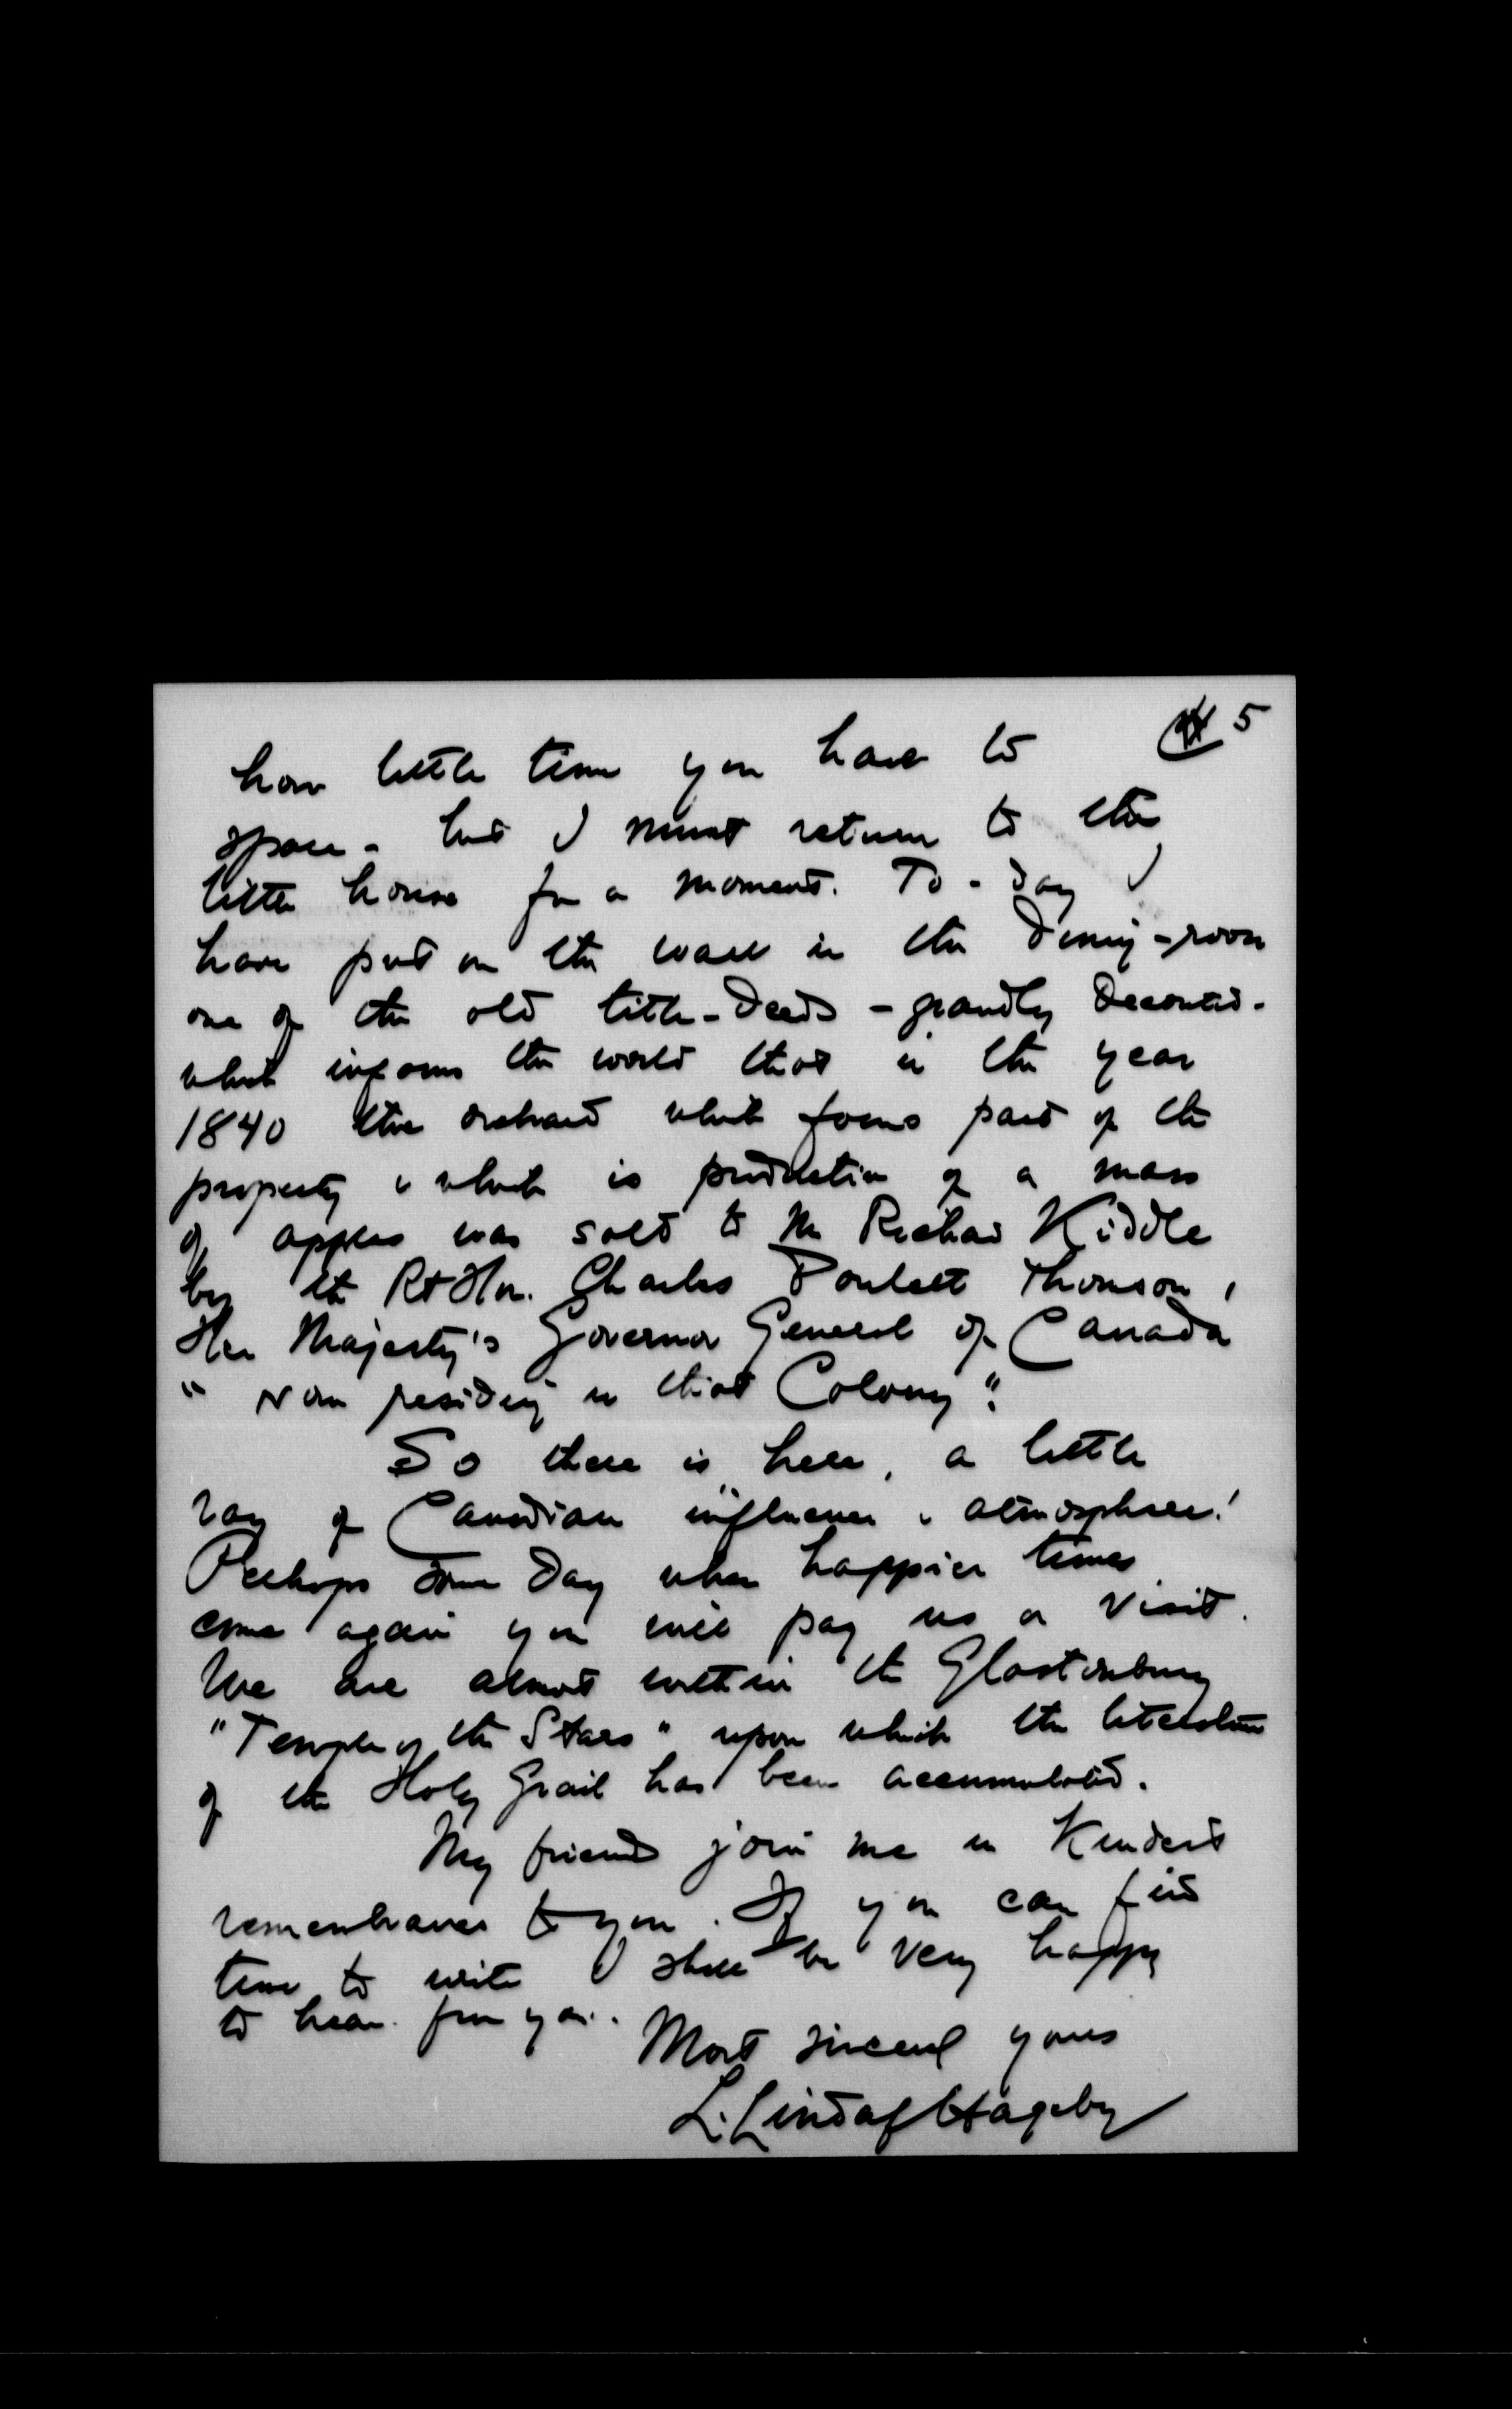 5
how little time you have to
spare - but I must return to the
little house for a moment. To-day I
have put on the wall in the dining-room
one of the old title-deeds - grandly decorated -
which informs the world that in the year
1840 the orchard which forms part of the
property & which is productive of a mass
of apples was sold to Mr Richard Kiddle
by the Rt Hon. Charles Poulett Thomson,
Her Majesty's Governor General of Canada
"now residing in that Colony".
So there is here, a little
ray of Canadian influence & atmosphere!
Perhaps some day when happier times
come again you will pay us a visit.
We are almost within the Glastonbury
"Temple of the Stars" upon which the literature
of the Holy Grail has been accumulated.
My friends join me in kindest
remembrances to you. If you can find
time to write I shall be very happy
to hear from you.
Most sincerely yours
L. Lind af Hageby